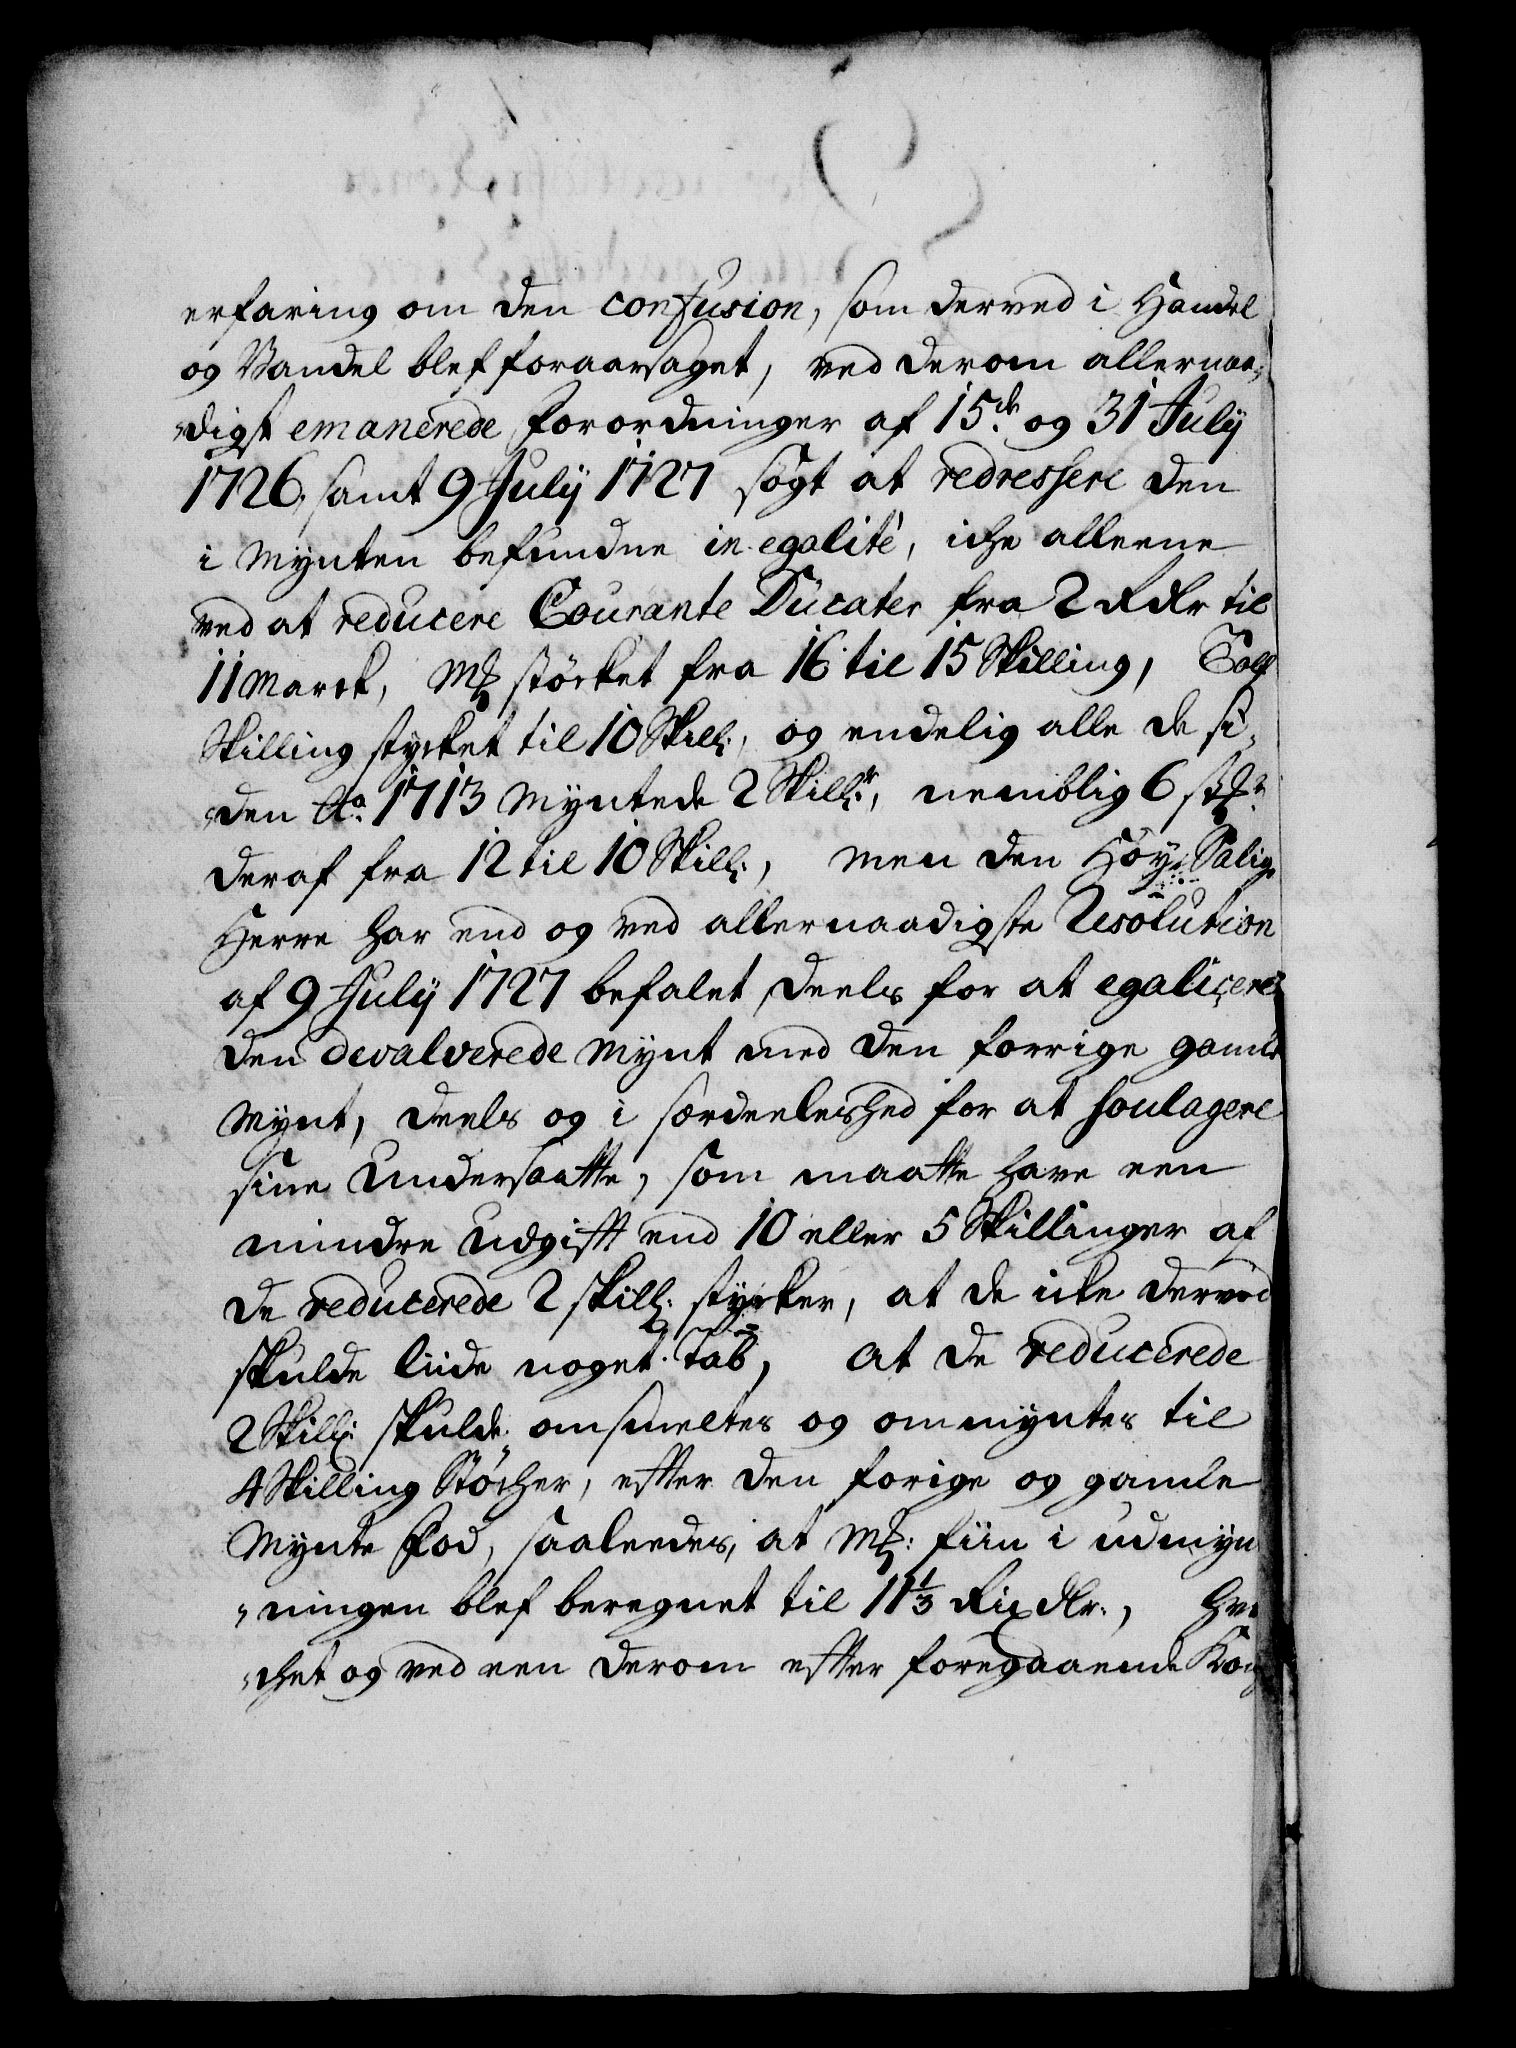 erfaring om den confusion, som derved i Handel
og Vandel blef foraarsaget, ved derom allernaa„
„digst emanerede forordninger af 15de og 31 Julÿ
1726, samt 9 Julÿ 1727 søgt at redressere den
i Mÿnten befundne in egalité, iche alleene
ved at reducere Courante Ducater fra 2 Rdlr til
11 Marck, Mk størket fra 16 til 15 Skilling, Tolf
Skilling stycket til 10 Skill:, og endelig alle de si„
„den Ao 1713 Myntede 2 Skillr:, nemblig 6 stkr
deraf fra 12 til 10 Skill:, men den Høy Salig
Herre har end og ved allernaadigste Resolution
af 9 Julÿ 1727 befalet, deels for at egalicere
den devalverede Mÿnt med den forrige gamle
Mÿnt, deels og i særdeeleshed for at soulagere
sine Undersaatte, som maatte have een
mindre udgifft end 10 eller 5 Skillinger af
de reducerede 2 skill: stycker, at de icke derved
skulde liide noget Tab, at de reducerede
2 Skill: skulde omsmeltes og ommÿntes til
4 Skilling Støcher, effter den forige og gamle
Mÿnte Fod, saaleedes, at Mk: fiin i udmÿn
„ningen blef beregnet til 11 1/3 Rixdlr:, hvi
„chet og ved een derom effter foregaaende Kong